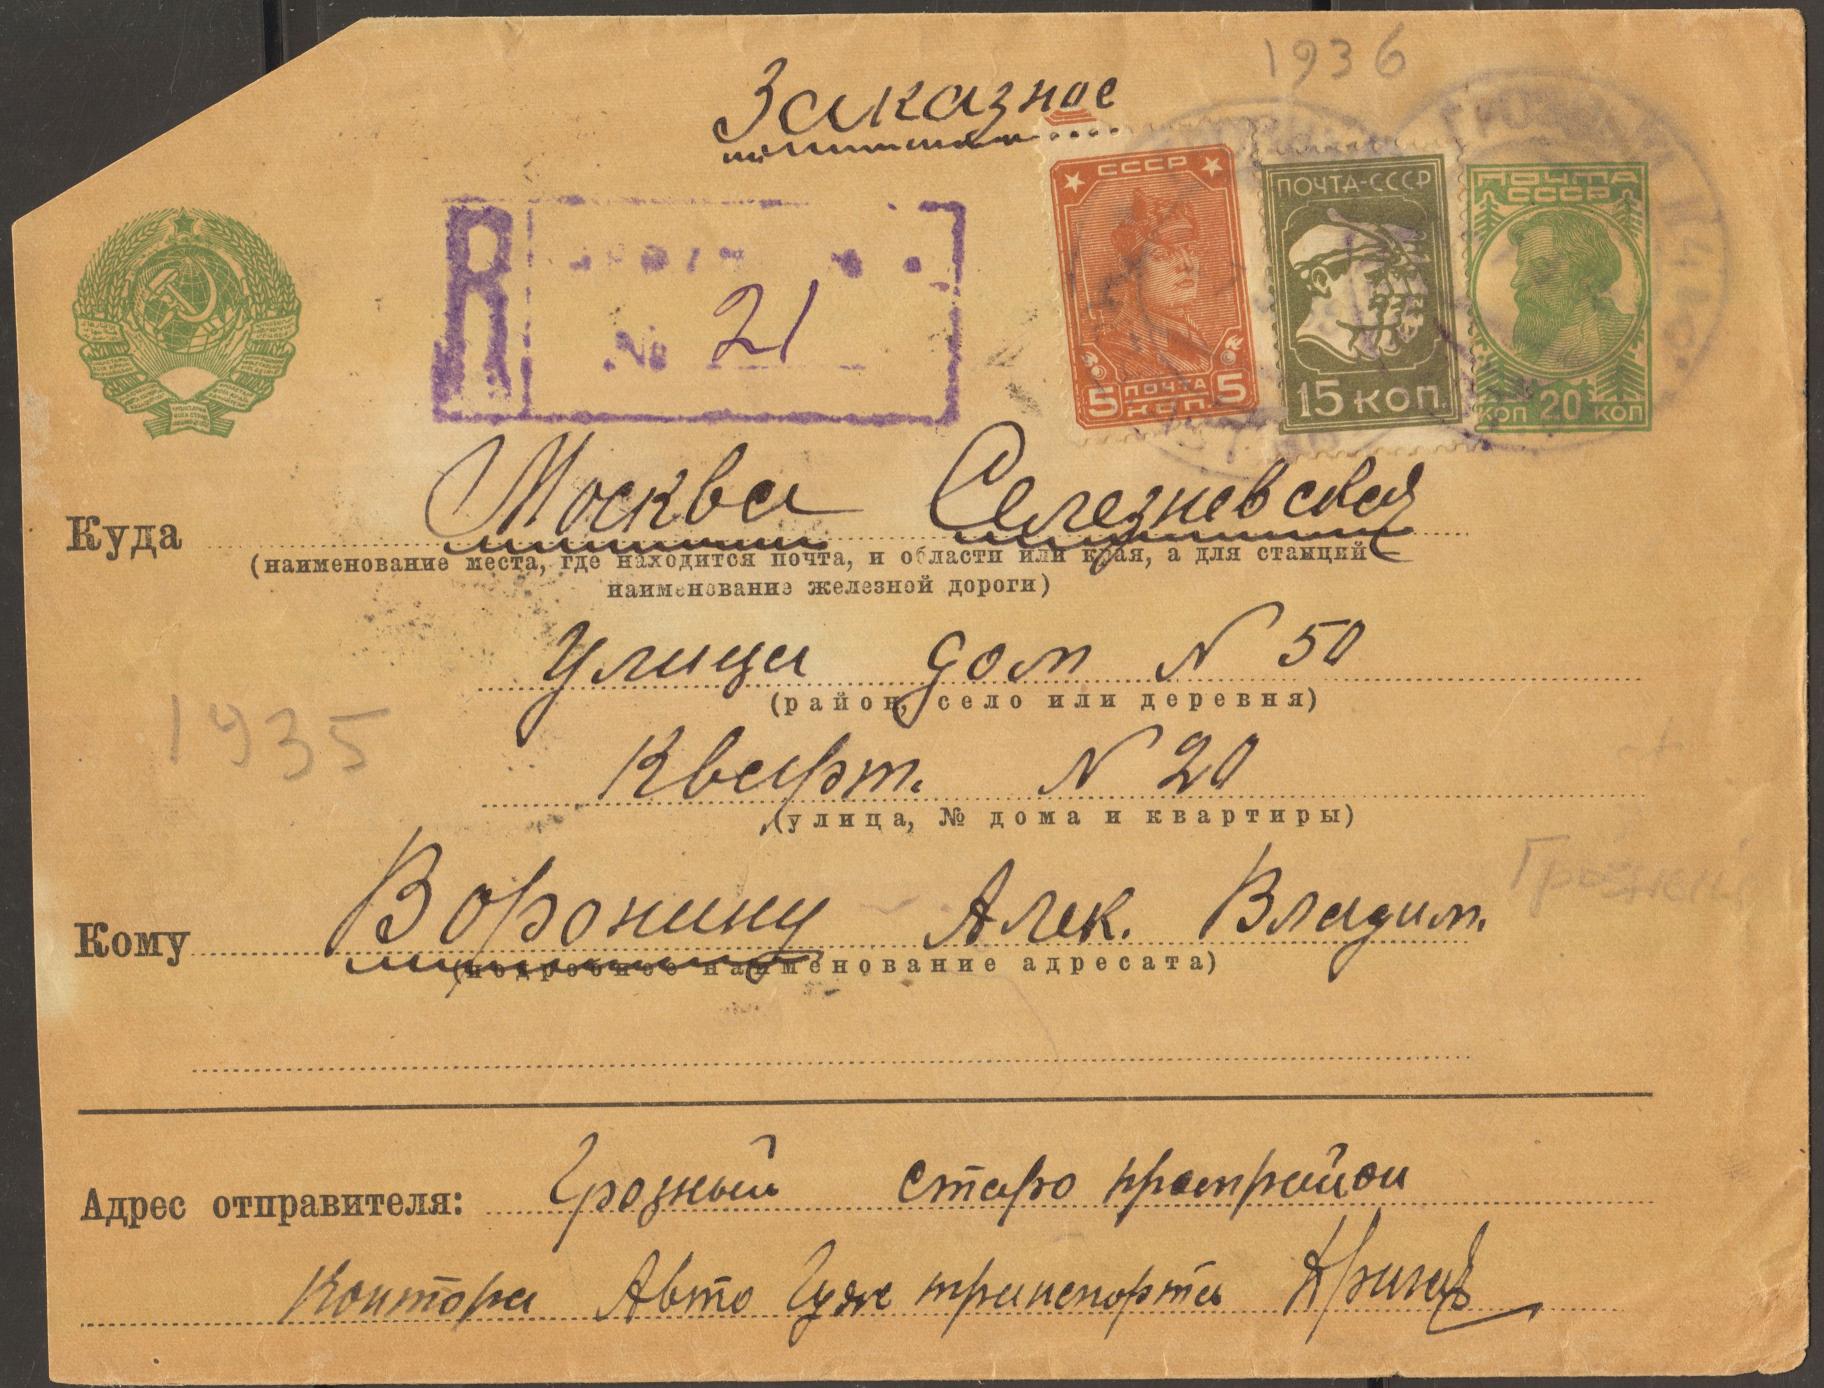 1936
Заказное
R
№ 21
СССР
5 ПОЧТА 5
КОП.
ПОЧТА-СССР
15 КОП.
ПОЧТА
СССР
КОП 20 КОП
Куда Москва Селезневская
(наименование места, где находится почта, и области или края, а для станций
наименование железной дороги)
Улица дом N 50
(район, село или деревня)
1935
Кварт. N 20
(улица, № дома и квартиры)
Грозный
Кому Воронину Алек. Владим.
(подробное наименование адресата)
Адрес отправителя: Грозный старо промрайон
контора Авто Гуж транспорта